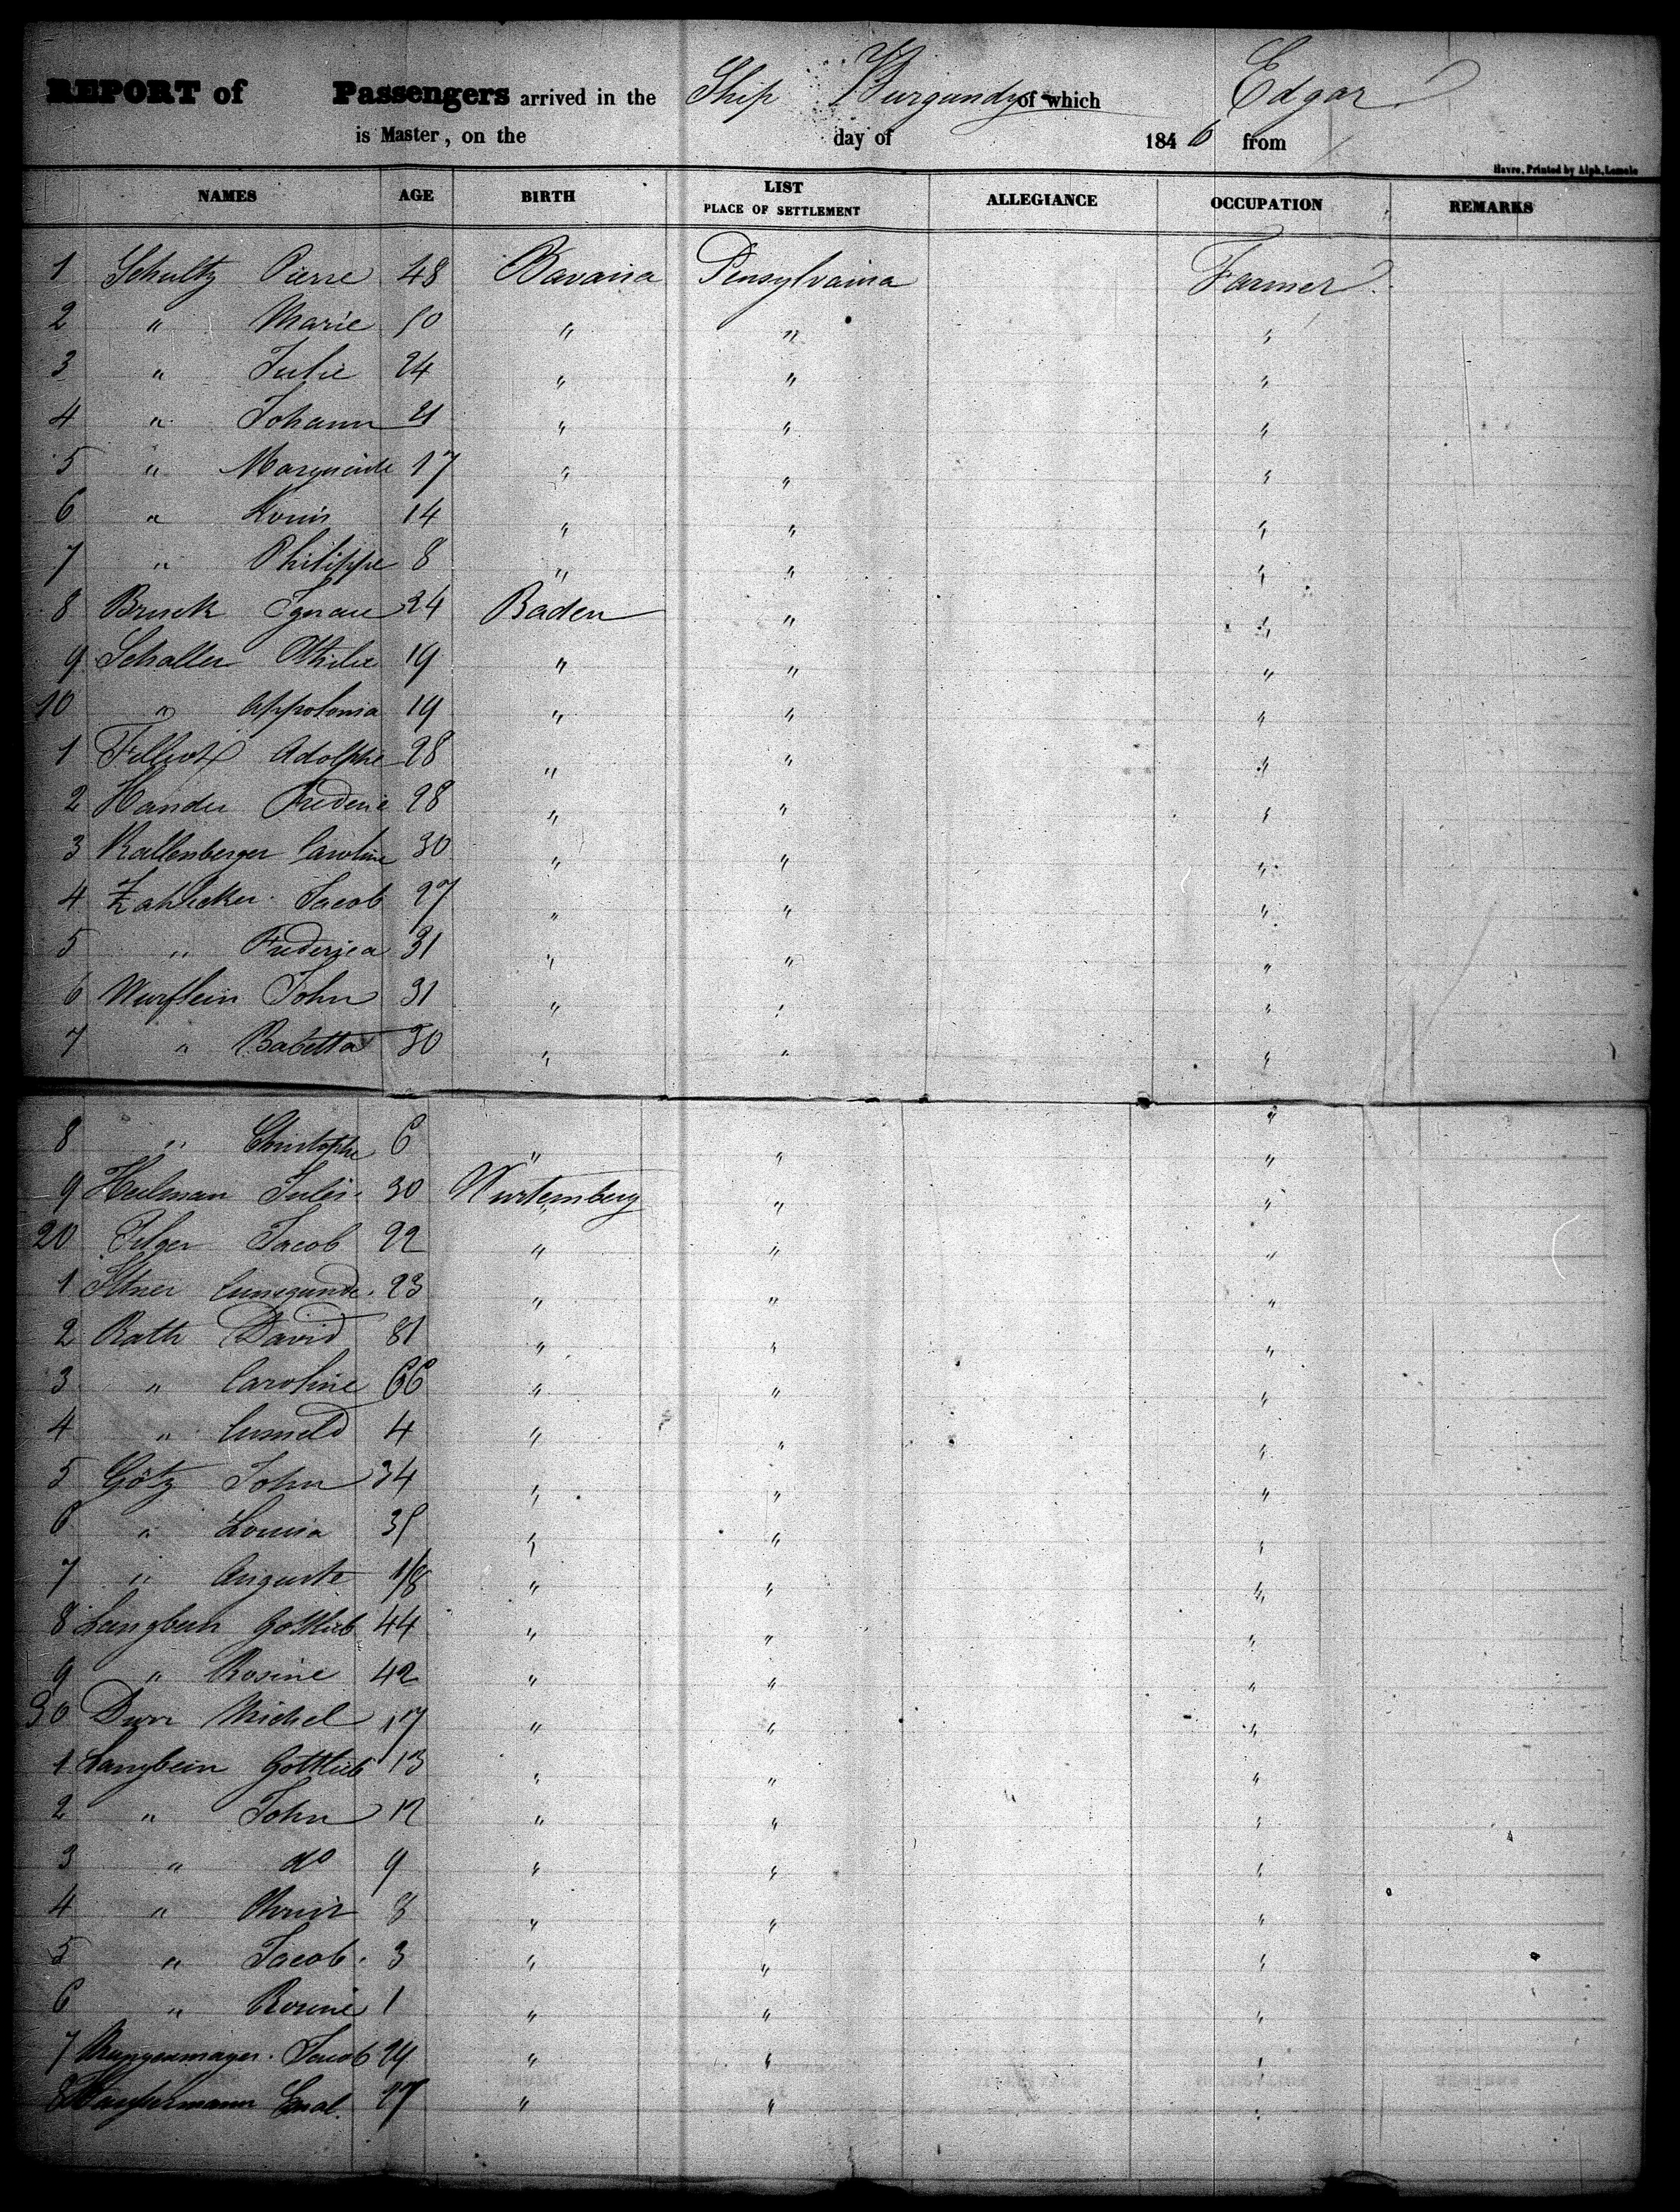 REPORT of Passengers arrived in the Ship Burgundy of which Edgar
is Master, on the day of 1846 from
Havre, Printed by Alph. Lemale
NAMES AGE BIRTH LIST PLACE OF SETTLEMENT ALLEGIANCE OCCUPATION REMARKS
1 Schultz Pierre 48 Bavaria Pensylvania Farmer
2 " Marie 50 " " "
3 " Julie 24 " " "
4 " Johann 21 " " "
5 " Marguerite 17 " " "
6 " Louis 14 " " "
7 " Philippe 8 " " "
8 Bruck Ignace 24 Baden " "
9 Schaller Othilie 19 " " "
10 " Appolonia 19 " " "
1 Adolphe 28 " " "
2 Frederic 28 " " "
3 Kallenberger Caroline 30 " " "
4 Jacob 27 " " "
5 " Frederica 31 " " "
6 Wurflein John 31 " " "
7 " Babetta 30 " " "
8 " Christophe 6 " " "
9 Heilman Jules 30 Wurtemberg " "
20 Filger Jacob 22 " " "
1 Ittner Cunegunde 23 " " "
2 Rath David 81 " " "
3 " Caroline 66 " " "
4 " 4 " " "
5 Götz John 34 " " "
6 " Louisa 35 " " "
7 " Auguste 1/8 " " "
8 Langbein Gottlieb 44 " " "
9 " Rosine 42 " " "
30 Durr Michel 17 " " "
1 Langbein Gottlieb 13 " " "
2 " John 12 " " "
3 " do 9 " " "
4 " 8 " " "
5 " Jacob 3 " " "
6 " Rosine 1 " " "
7 Jacob 24 " " "
8 27 " " "